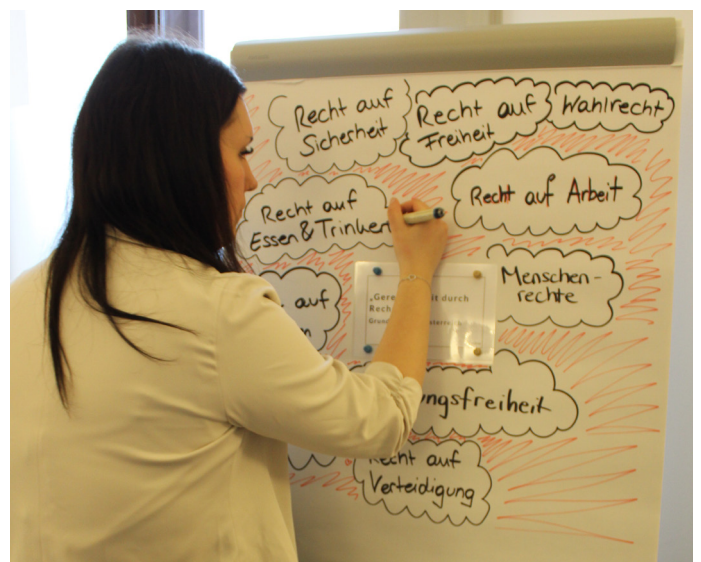 Recht auf
Sicherheit
Recht auf
Freiheit
Wahlrecht
Recht auf
Essen & Trinken
Recht auf Arbeit
auf
Menschen-
rechte
durch
Recht auf
Verteidigung